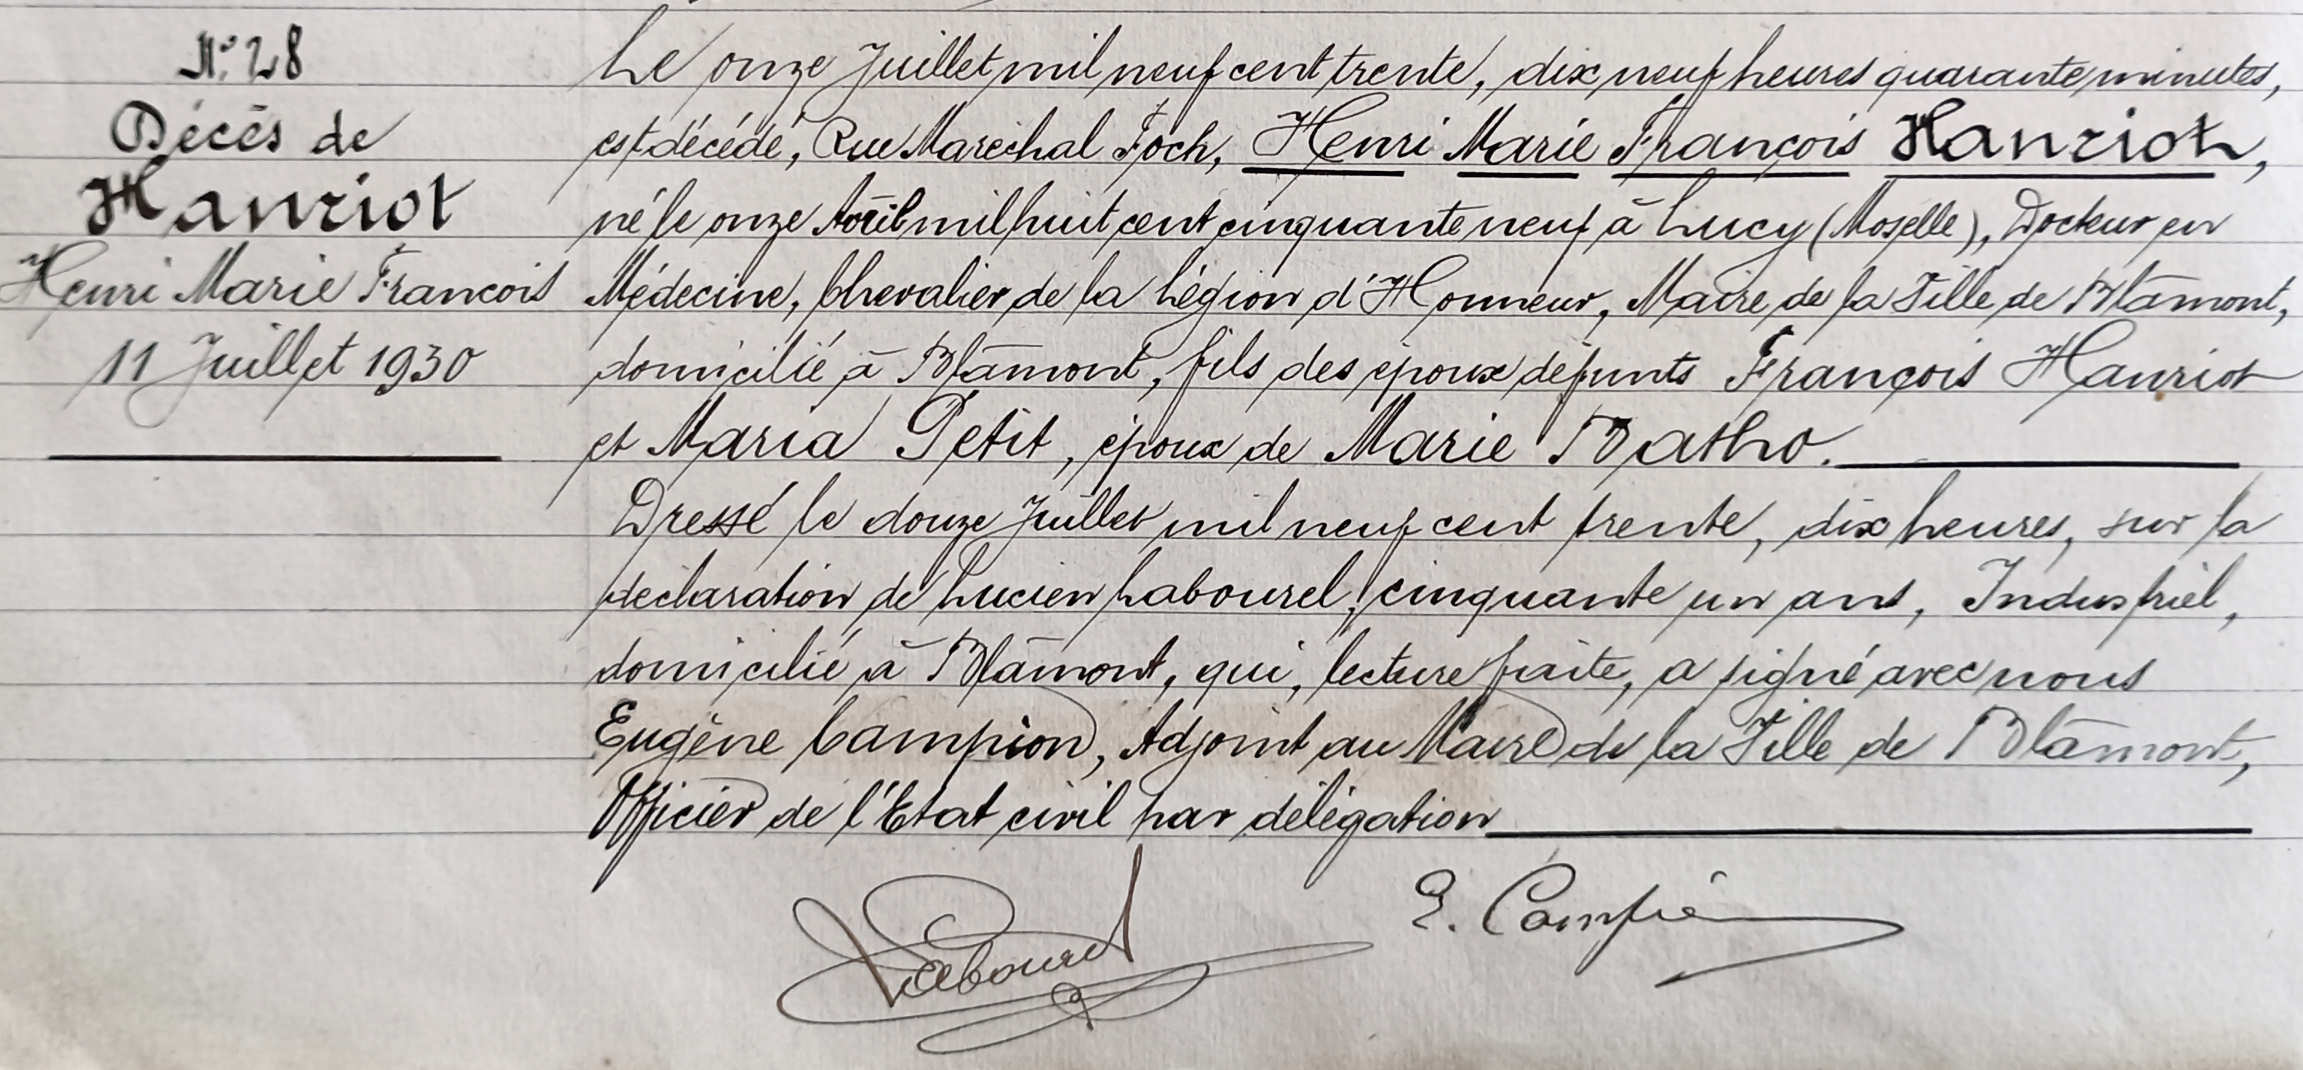 N° 28
Décès de
Hanriot
Henri Marie François
11 Juillet 1930
Le onze Juillet mil neuf cent trente, dix neuf heures quarante minutes,
est décédé, Rue Maréchal Foch, Henri Marie François Hanriot,
né le onze Avril mil huit cent cinquante neuf à Lucy (Moselle), Docteur en
Médecine, Chevalier de la Légion d'Honneur, Maire de la Ville de Blâmont,
domicilié à Blâmont, fils des époux défunts François Hanriot
et Maria Petit, époux de Marie Batho.
Dressé le douze Juillet mil neuf cent trente, dix heures, sur la
déclaration de Lucien Labourel, cinquante un ans, Industriel,
domicilié à Blâmont, qui, lecture faite, a signé avec nous
Eugène Campion, Adjoint au Maire de la Ville de Blâmont,
Officier de l'Etat civil par délégation
Labourel
E. Campion